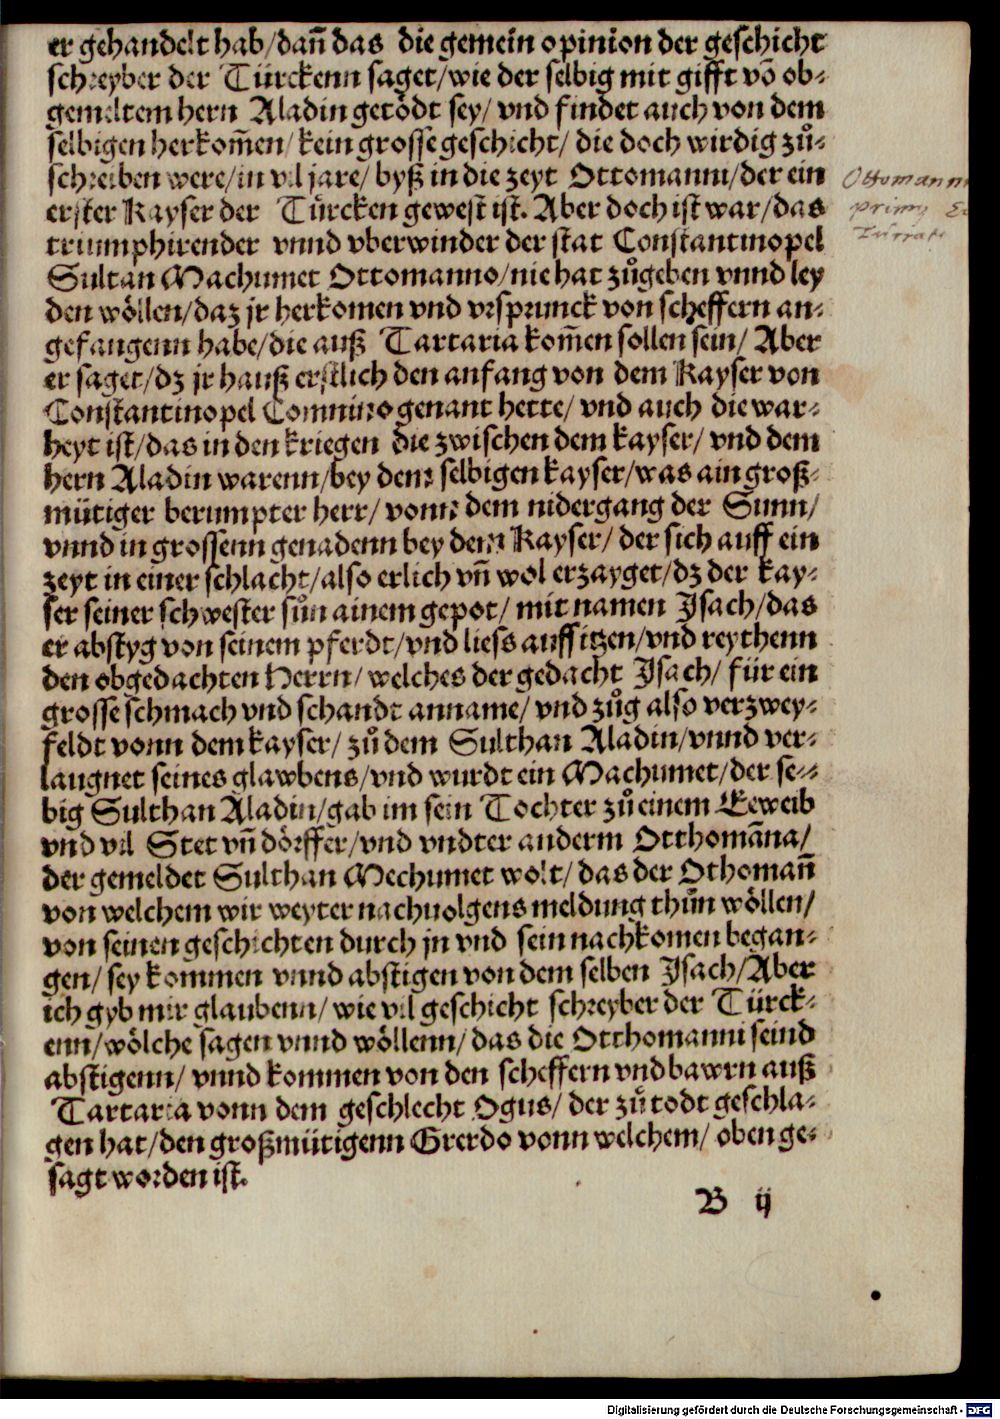 er gehandelt hab/dañ das die gemein opinion der geschicht
schreyber der Türckenn saget/wie der selbig mit gifft võ ob⸗
gemeltem hern Aladin getödt sey/ vnd findet auch von dem
selbigen herkom̃en/ kein grosse geschicht/ die doch wirdig zů⸗
schreiben were/in vil jare/ byß in die zeyt Ottomanni/der ein
erster Kayser der Türcken gewest ist. Aber doch ist war/das
triumphirender vnnd vberwinder der stat Constantinopel
Sultan Machumet Ottomanno/nie hat zůgeben vnnd ley
den wöllen/daz jr herkomen vnd vrsprunck von scheffern an⸗
gefangenn habe/die auß Tartaria kom̃en sollen sein/ Aber
er saget/dz jr hauß erstlich den anfang von dem Kayser von
Constantinopel Comnino genant hette/ vnd auch die war⸗
heyt ist/das in den kriegen die zwischen dem kayser/ vnd dem
hern Aladin warenn/bey dem selbigen kayser/was ain groß⸗
mütiger berumpter herr/ vonn dem nidergang der Sunn/
vnnd in grossenn genadenn bey dem Kayser/ der sich auff ein
zeyt in einer schlacht/also erlich vñ wol erzayget/dz der kay⸗
ser seiner schwester sůn ainem gepot/ mit namen Isach/das
er abstyg von seinem pferdt/vnd liess auffsitzen/vnd reythenn
den obgedachten Herrn/ welches der gedacht Isach/ für ein
grosse schmach vnd schandt anname/ vnd zůg also verzwey⸗
feldt vonn dem kayser/ zů dem Sulthan Aladin/vnnd ver⸗
laugnet seines glawbens/vnd wurdt ein Machumet/der se⸗
big Sulthan Aladin/gab im sein Tochter zů einem Eeweib
vnd vil Stet vñ dörffer/vnd vndter anderm Otthomãna/
der gemeldet Sulthan Mechumet wolt/das der Othomañ
von welchem wir weyter nachuolgens meldung thůn wöllen/
von seinen geschichten durch jn vnd sein nachkomen began⸗
gen/ sey kommen vnnd abstigen von dem selben Isach/Aber
ich gyb mir glaubenn/ wie vil geschicht schreyber der Türck⸗
enn/wölche sagen vnnd wöllenn/ das die Otthomanni seind
abstigenn/ vnnd kommen von den scheffern vnd bawrn auß
Tartaria vonn dem geschlecht Ogus/ der zů todt geschla⸗
gen hat/den großmütigenn Grerdo vonn welchem/ oben ge⸗
sagt worden ist.
B ij
Ottomann
primus
Digitalisierung gefördert durch die Deutsche Forschungsgemeinschaft - DFG